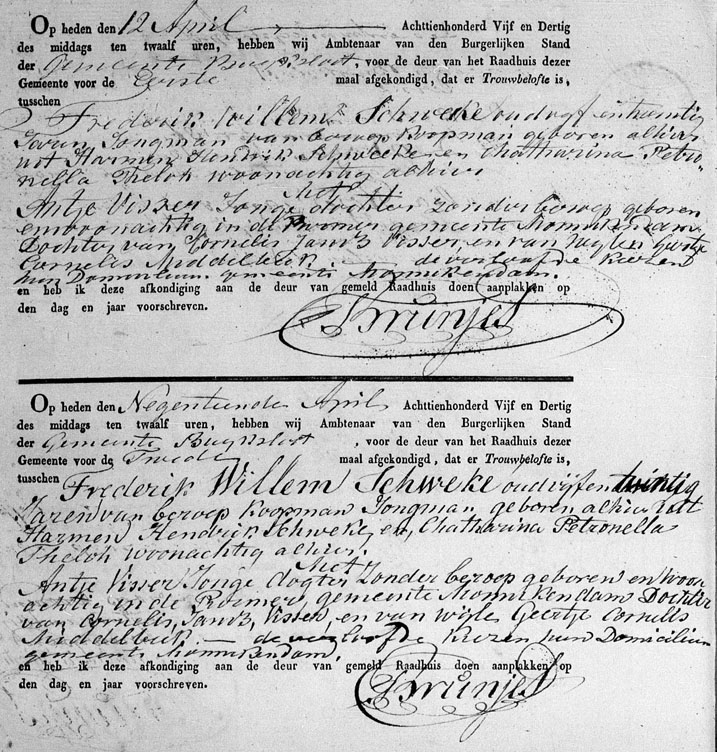 Op heden den 12 April Achttienhonderd Vijf en Dertig
des middags ten twaalf uren, hebben wij Ambtenaar van den Burgerlijken Stand
der Gemeente Buyksloot, voor de deur van het Raadhuis dezer
Gemeente voor de Eerste maal afgekondigd, dat er Trouwbelofte is,
tusschen
Frederik Willem Schweke oud vyf en twintig
Jaren Jongman van beroep Koopman geboren alhier
uit Harmen Hendrik Schweke en Chatharina Petro-
nella Theloh woonachtig alhier
Met
Antje Visser Jonge dochter zonder beroep geboren
en woonachtig in de Purmer gemeente Monnikendam
Dochter van Cornelis Jansz Visser, en van wylen Geertje
Cornelis Middelbeek de verloofde kiezen
hun Domicilium gemeente Monnikendam.
en heb ik deze afkondiging aan de deur van gemeld Raadhuis doen aanplakken op
den dag en jaar voorschreven.
Bruinjes
Op heden den Negentiende April Achttienhonderd Vijf en Dertig
des middags ten twaalf uren, hebben wij Ambtenaar van den Burgerlijken Stand
der Gemeente Buyksloot, voor de deur van het Raadhuis dezer
Gemeente voor de Tweede maal afgekondigd, dat er Trouwbelofte is,
tusschen
Frederik Willem Schweke oud vijf en twintig
Jaren van beroep Koopman Jongman geboren alhier uit
Harmen Hendrick Schweke, en, Chatharina Petronella
Theloh woonachtig alhier.
Met
Antje Visser Jonge dogter Zonder beroep geboren en Woon
achtig in de Purmer, gemeente Monnikendam Dochter
van Cornelis, Jansz, Visser, en van wijle Geertje Cornelis
Middelbeek. de verloofde kiezen hun Domicilium
gemeente Monnikendam,
en heb ik deze afkondiging aan de deur van gemeld Raadhuis doen aanplakken op
den dag en jaar voorschreven.
Bruinjes